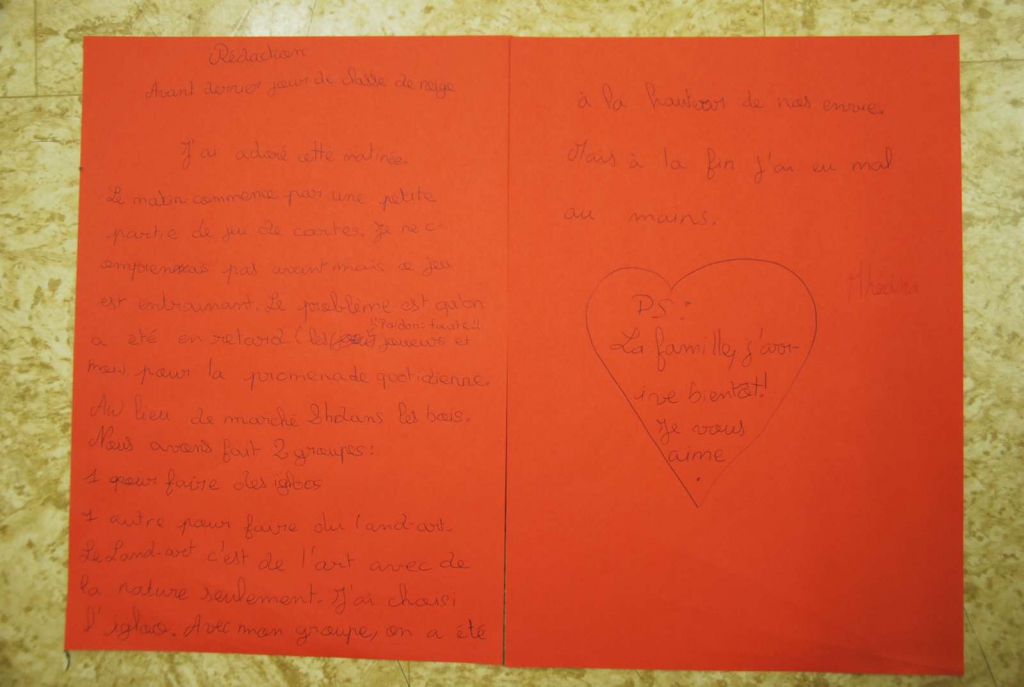 Rédaction
Avant dernier jour de classe de neige
J'ai adoré cette matinée.
Le matin commence par une petite
partie de jeu de cartes. Je ne c
omprenais pas avant mais ce jeu
est entrainant. Le problème est qu'on
"Pardon: toute"
a été en retard (les joueurs et
moi pour la promenade quotidienne.
Au lieu de marché 2h dans les bois.
Nous avons fait 2 groupes:
1 pour faire des igloos
1 autre pour faire du land-art.
Le Land-art c'est de l'art avec de
la nature seulement. J'ai choisi
l'igloo. Avec mon groupe, on a été
à la hauteur de nos envie.
Mais à la fin j'ai eu mal
au mains.
PS:
La famille, j'arr-
ive bientôt!
Je vous
aime